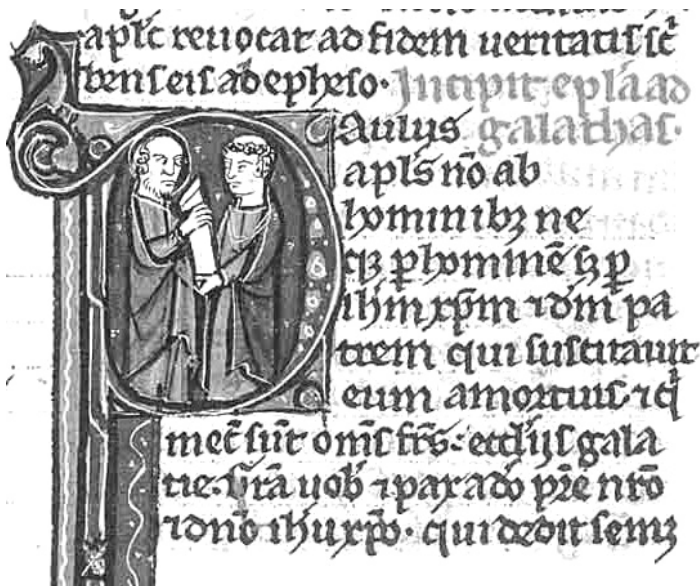 apłs reuocat ad fidem ueritatis sc̄
bens eis ab epheso. Incipit epl̄a ad
Paulus galathas.
apl̄s nō ab
hominibꝫ ne
qꝫ ꝑ hominē sꝫ ꝑ
ih̄m xp̄m ⁊ dm̄ pa
trem qui suscitauit
eum a mortuis. ⁊ q̄
mec̄ sūt om̄s fr̄s. eccl̄ijs gala
tie. Gr̄a uob̄ ⁊ pax a dō pr̄e nr̄o
⁊ dn̄o ih̄u xp̄o. qui dedit semꝫ